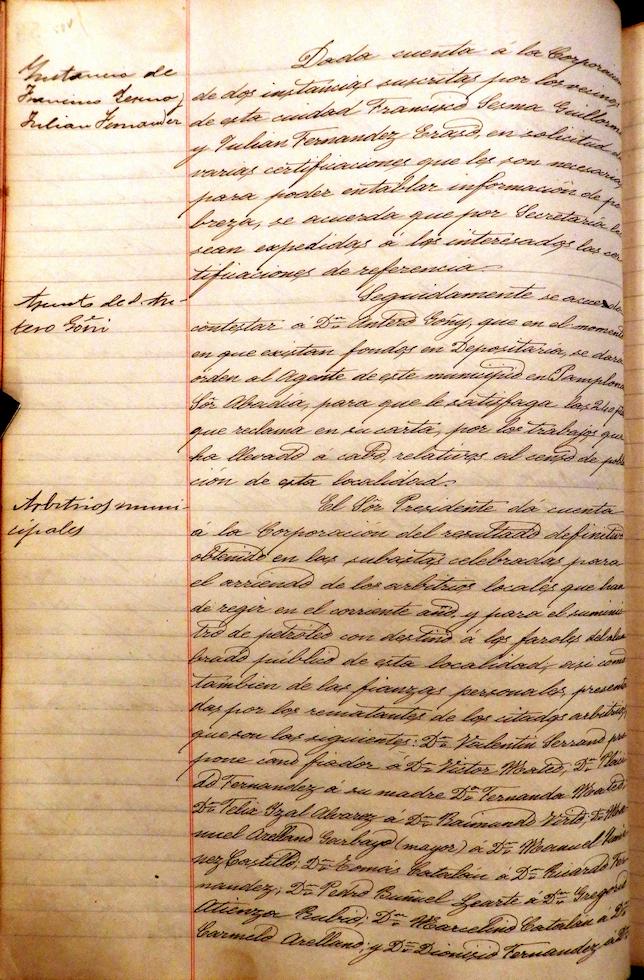 Instancia de
Francisco Serma y
Julian Fernandez
Dada cuenta á la Corporacion
de dos instancias suscritas por los vecinos
de esta cuidad Francisco Serma Guillermo
y Julian Fernandez Eraso, en solicitud de
varias certificaciones que les son necesarias
para poder entablar información de po
breza, se acuerda que por Secretaría les
sean expedidas á los interesados las cer
tificaciones de referencia.
Asunto de D. An-
tero Goñi
Seguidamente se acuerda
contestar á Dn. Antero Goñy, que en el momento
en que existan fondos en Depositaría, se dará
orden al Agente de este municipio en Pamplona
Sór Abadia, para que le satisfaga las 240
que reclama en su carta, por los trabajos que
ha llevado á cabo, relativos al censo de pobla
ción de esta localidad.
Arbitrios muni-
cipales
El Sór Presidente dá cuenta
á la Corporación del resultado definitivo
obtenido en las subastas celebradas para
el arriendo de los arbitrios locales que han
de regir en el corriente año, y para el suminis
tro de petróleo con destino á los faroles del alum
brado público de esta localidad, asi como
tambien de las fianzas personales, presenta
das por los rematantes de los citados arbitrios,
que son los siguientes: Dn. Valentin Serrano pro
pone como fiador á Dn. Victor Mateo; Dn. Pláci
do Fernandez á su madre Dña. Fernanda
Dn. Felix Yzal Alvarez á Dn. Raimundo Virto; Dn. Ma
nuel Arellano Garbayo (mayor) á Dn. Manuel
nez Castillo; Dn. Tomás Catalan á Dn. Ricardo Fer
nandez; Dn. Pedro Buñuel Ligarte á Dn. Gregorio
Atienza Rubio; Dn. Marcelino Catalan á Dn.
Carmelo Arellano; y Dn. Dionisio Fernandez á Dn.